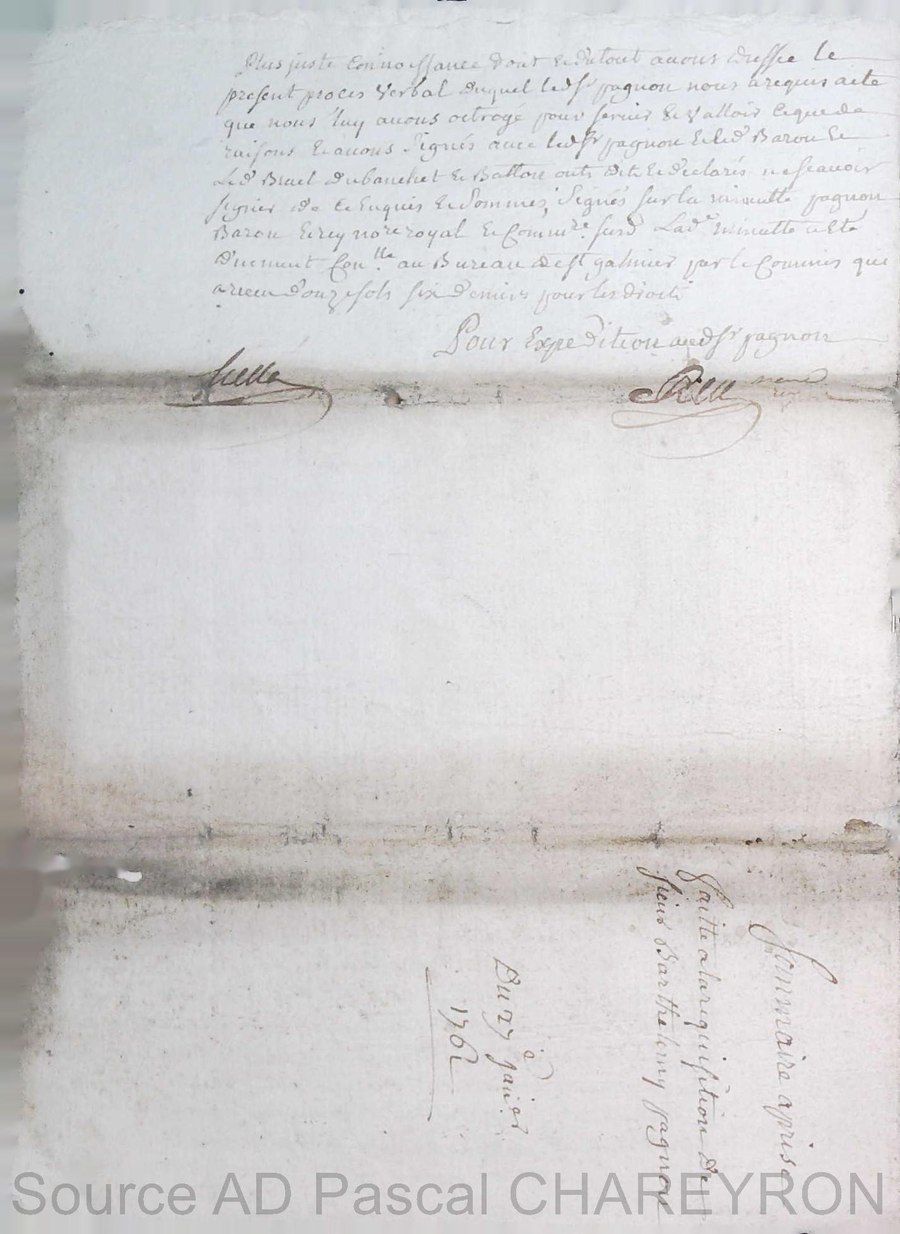 plus juste Connoissance dont & du tout avons dressée le
present proces Verbal duquel led sr pagnon nous a requis acte
que nous luy avons octroyé pour servir & Valloir ce que de
raisons & avons Signés avec led sr pagnon & led Baron &
Led Bruel dubanchet & Batton onts dit & declarés ne scavoir
signer de ce Enquis & Sommés, Signés sur la minutte pagnon
Baron & rey nore royal & Commre. surd Lade minutte a Eté
duement Conlle au Bureau de st galmier par le Commis qui
a receu d'onze sols six deniers pour les droits
Pour Expedition aud sr pagnon
Sommaire aprise
faitte a la requisition de
sieur Barthelemy pagnon
Du 27 janer
1762
Source AD Pascal CHAREYRON